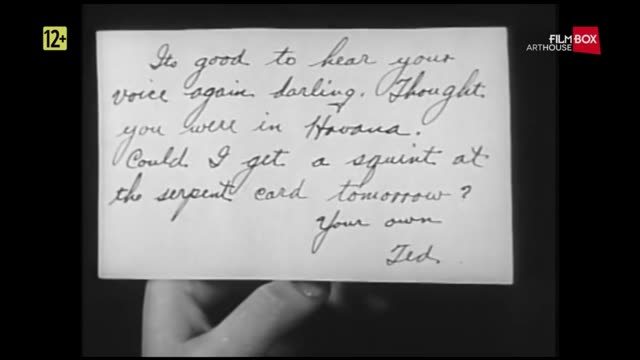 12+
FILMBOX
ARTHOUSE
Its good to hear your
voice again darling. Thought
you were in Havana.
Could I get a squint at
the serpent card tomorrow?
Your own
Ted.